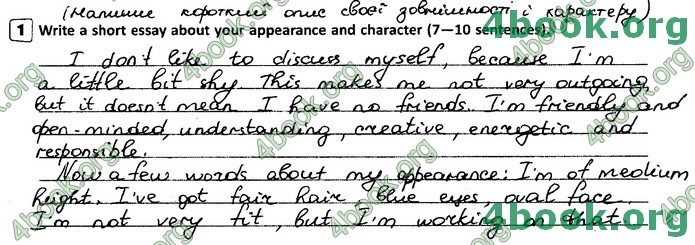 (Напишие короткий опис своєї зовнішності і характеру)
1 Write a short essay about your appearance and character (7—10 sentences).
I don't like to discuss myself, because I'm
a little bit shy. This makes me not very outgoing,
but it doesn't mean I have no friends. I'm friendly and
open-minded, understanding, creative, energetic and
responsible.
Now a few words about my appearance: I'm of medium
height. I've got fair hair, blue eyes, oval face.
I'm not very fit, but I'm working on that.
4book.org